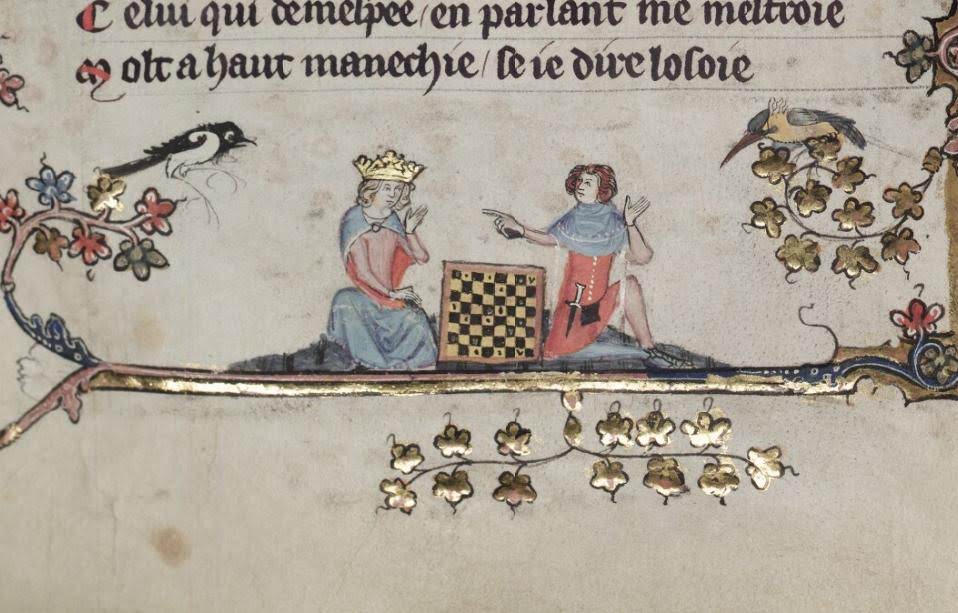 C elui qui demespee / en parlant me mestroie
M olt a haut manechie / se ie dire losoie